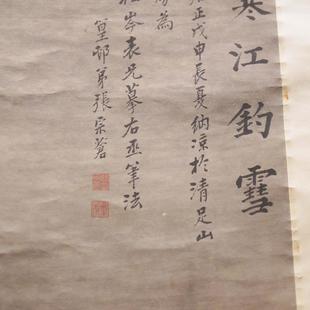 寒江釣雪
正戊申長夏納凉於清足山
為
岑表兄摹右丞筆法
篁邨弟張宗蒼